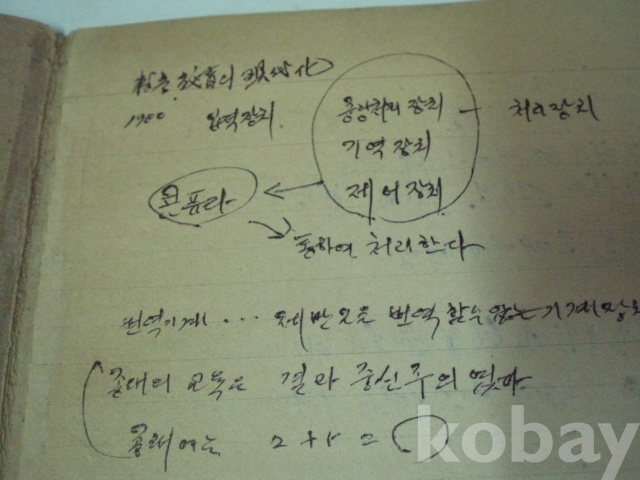 敎育의 現代化
1980 입력장치 중앙처리 장치 - 처리장치
기억장치
제어장치
콤퓨타
통하여 처리한다
번역기계 ... 제반 모든 번역 할수 있는 기계장치
종래의 교육은 결과 중심주의 였다
종래에는 2+5=
kobay